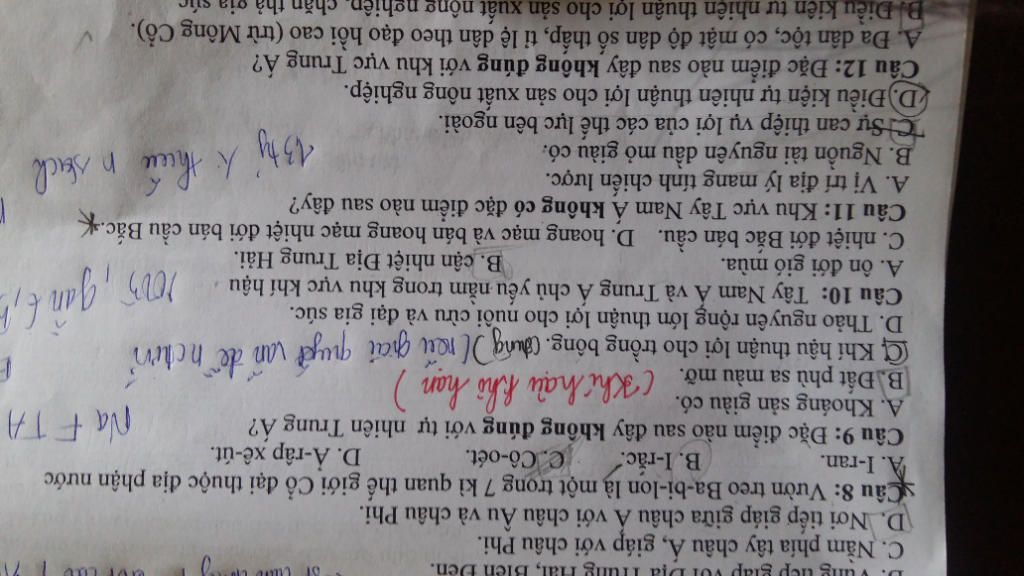 D. Vùng tiếp giáp với Địa Trung Hải, Biển Đen.
C. Nằm phía tây châu Á, giáp với châu Phi.
D. Nơi tiếp giáp giữa châu Á với châu Âu và châu Phi.
Câu 8: Vườn treo Ba-bi-lon là một trong 7 kì quan thế giới Cổ đại thuộc địa phận nước
A. I-ran. B. I-rắc. C. Cô-oét. D. Ả-rập xê-út.
Câu 9: Đặc điểm nào sau đây không đúng với tự nhiên Trung Á?
Na FTA
A. Khoáng sản giàu có.
(Khí hậu khô hạn)
B. Đất phù sa màu mỡ.
C. Khí hậu thuận lợi cho trồng bông. (đúng) (nếu giải quyết vấn đề n
D. Thảo nguyên rộng lớn thuận lợi cho nuôi cừu và đại gia súc.
Câu 10: Tây Nam Á và Trung Á chủ yếu nằm trong khu vực khí hậu
A. ôn đới gió mùa. B. cận nhiệt Địa Trung Hải.
C. nhiệt đới Bắc bán cầu. D. hoang mạc và bán hoang mạc nhiệt đới bán cầu Bắc.
Câu 11: Khu vực Tây Nam Á không có đặc điểm nào sau đây?
A. Vị trí địa lý mang tính chiến lược.
B. Nguồn tài nguyên dầu mỏ giàu có.
C. Sự can thiệp vụ lợi của các thế lực bên ngoài.
D. Điều kiện tự nhiên thuận lợi cho sản xuất nông nghiệp.
1,3 tỷ k thiếu n sạch
Câu 12: Đặc điểm nào sau đây không đúng với khu vực Trung Á?
A. Đa dân tộc, có mật độ dân số thấp, tỉ lệ dân theo đạo hồi cao (trừ Mông Cổ).
B. Điều kiện tự nhiên thuận lợi cho sản xuất nông nghiệp, chăn thả gia súc